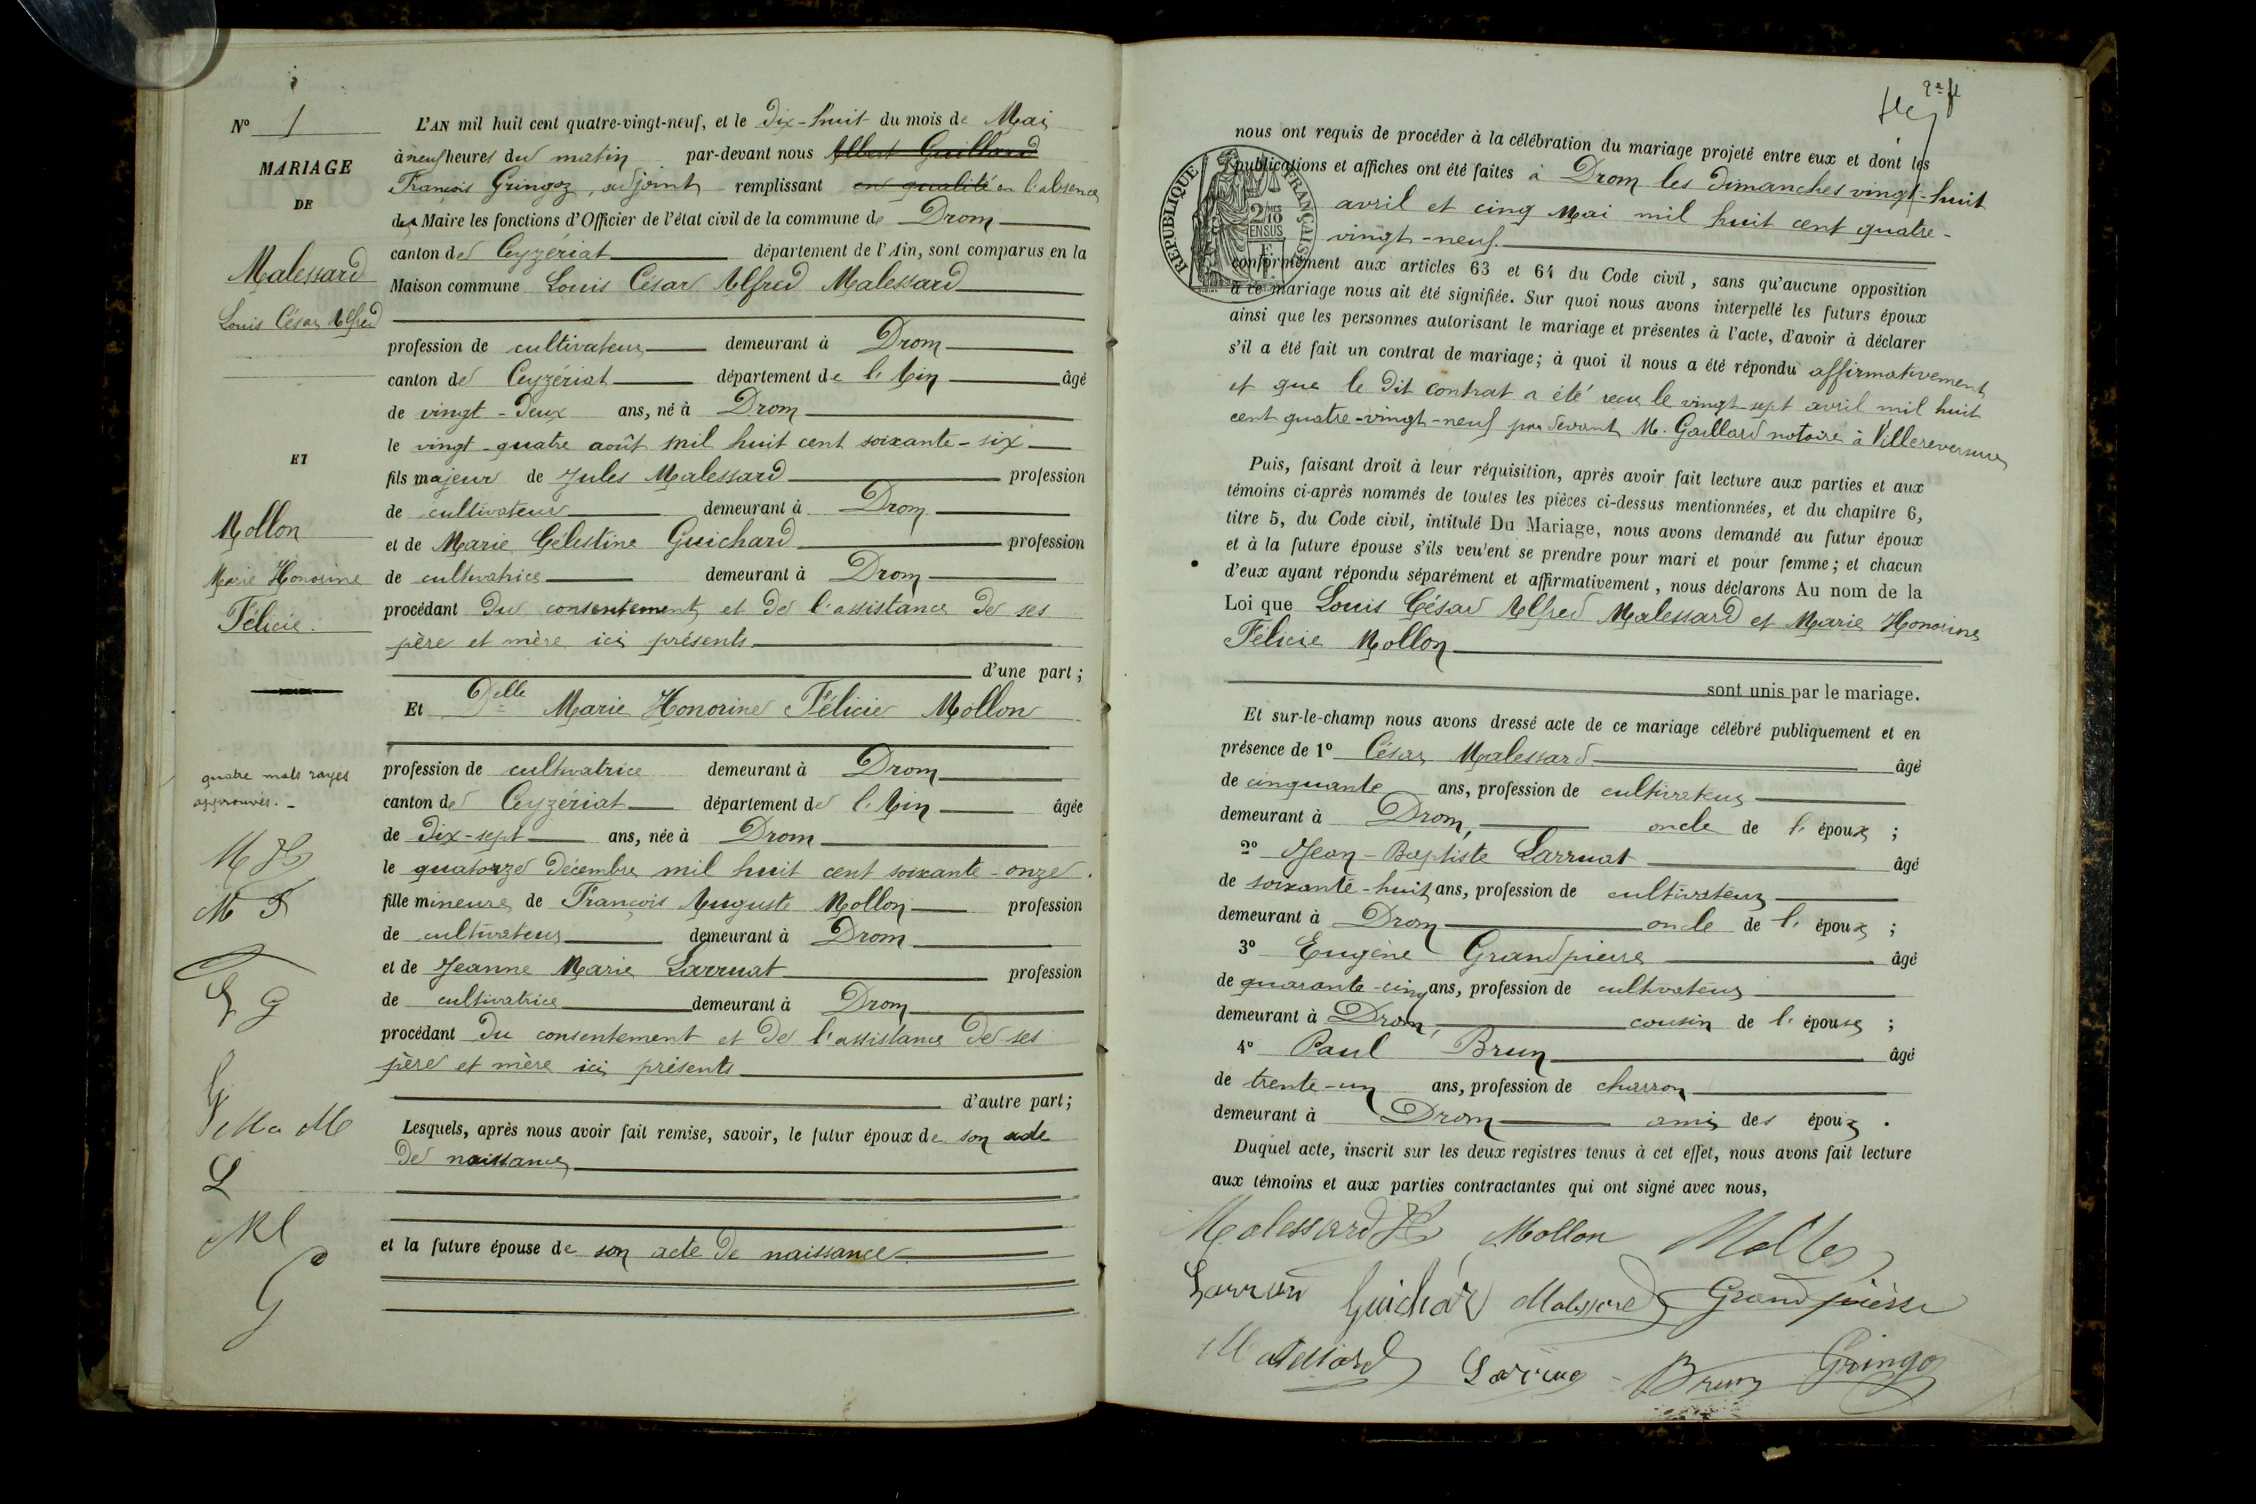 N° 1
MARIAGE
DE
Malessard
Louis César Alfred
ET
Mollon
Marie Honorine
Félicie.
quatre mots rayés
approuvés. -
M
M F
L G
G
Ma M
L
Ml
G
L'AN mil huit cent quatre-vingt-neuf, et le dix-huit du mois de Mai
à neuf heures du matin par-devant nous Albert Guillard
François Gringoz, adjoint remplissant en qualité en l'absence
du Maire les fonctions d'Officier de l'état civil de la commune de Drom
canton de Ceyzériat département de l'Ain, sont comparus en la
Maison commune Louis César Alfred Malessard
profession de cultivateur demeurant à Drom
canton de Ceyzériat département de l'Ain âgé
de vingt-deux ans, né à Drom
le vingt-quatre août mil huit cent soixante-six
fils majeur de Jules Malessard profession
de cultivateur demeurant à Drom
et de Marie Célestine Guichard profession
de cultivatrice demeurant à Drom
procédant du consentement et de l'assistance de ses
père et mère ici présents
d'une part;
Et Delle Marie Honorine Félicie Mollon
profession de cultivatrice demeurant à Drom
canton de Ceyzériat département de l'Ain âgée
de dix-sept ans, née à Drom
le quatorze décembre mil huit cent soixante-onze.
fille mineure de François Auguste Mollon profession
de cultivateur demeurant à Drom
et de Jeanne Marie Larruat profession
de cultivatrice demeurant à Drom
procédant du consentement et de l'assistance de ses
père et mère ici présents
d'autre part;
Lesquels, après nous avoir fait remise, savoir, le futur époux de son acte
de naissance
et la future épouse de son acte de naissance
2e f
RÉPUBLIQUE FRANÇAISE
2/10 EN SUS
nous ont requis de procéder à la célébration du mariage projeté entre eux et dont les
publications et affiches ont été faites à Drom les dimanches vingt-huit
avril et cinq Mai mil huit cent quatre-
vingt-neuf.
conformément aux articles 63 et 64 du Code civil, sans qu'aucune opposition
à ce mariage nous ait été signifiée. Sur quoi nous avons interpellé les futurs époux
ainsi que les personnes autorisant le mariage et présentes à l'acte, d'avoir à déclarer
s'il a été fait un contrat de mariage; à quoi il nous a été répondu affirmativement
et que le dit contrat a été reçu le vingt-sept avril mil huit
cent quatre-vingt-neuf par devant M. Gaillard notaire à Villereversure
Puis, faisant droit à leur réquisition, après avoir fait lecture aux parties et aux
témoins ci-après nommés de toutes les pièces ci-dessus mentionnées, et du chapitre 6,
titre 5, du Code civil, intitulé Du Mariage, nous avons demandé au futur époux
et à la future épouse s'ils veulent se prendre pour mari et pour femme; et chacun
d'eux ayant répondu séparément et affirmativement, nous déclarons Au nom de la
Loi que Louis César Alfred Malessard et Marie Honorine
Félicie Mollon
sont unis par le mariage.
Et sur-le-champ nous avons dressé acte de ce mariage célébré publiquement et en
présence de 1° César Malessard âgé
de cinquante ans, profession de cultivateur
demeurant à Drom, oncle de l' époux ;
2° Jean-Baptiste Larruat âgé
de soixante-huit ans, profession de cultivateur
demeurant à Drom oncle de l' époux ;
3° Eugène Grandpierre âgé
de quarante-cinq ans, profession de cultivateur
demeurant à Drom, cousin de l' épouse ;
4° Paul Brun âgé
de trente-un ans, profession de charron
demeurant à Drom ami des époux .
Duquel acte, inscrit sur les deux registres tenus à cet effet, nous avons fait lecture
aux témoins et aux parties contractantes qui ont signé avec nous,
Malessard Mollon
Guichar Malessard Grandpierre
Malessard Brun Gringoz